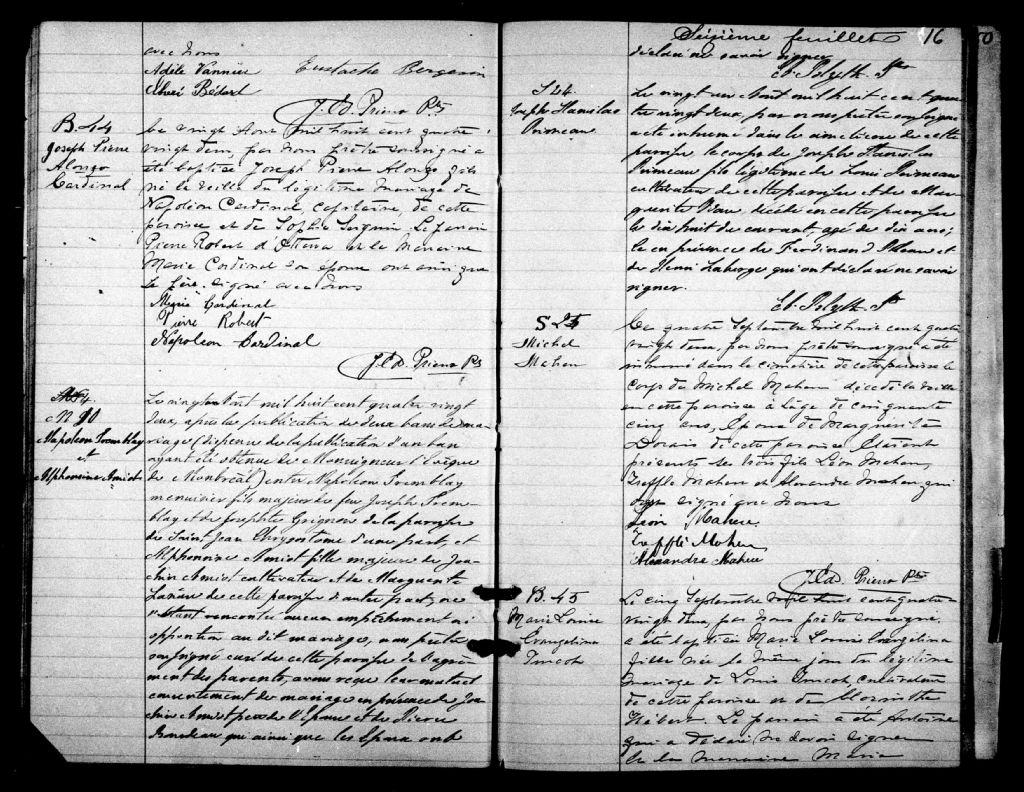 avec nous
Adèle Vannier Eustache Bergevin
Bédard
J. Cd. Prieno Ptr
B. 44
Joseph Pierre
Alonzo
Cardinal
Le vingt Aout mil huit cent quatre
vingt deux, par nous prêtre soussigné a
été baptisé Joseph Pierre Alonzo fils
né la veille du légitime mariage de
Napoléon Cardinal, Capitaine, de cette
paroisse et de Sophie Seguin. Le parain
Pierre Robert d'Ottawa et la marraine
Marie Cardinal son épouse ont ainsi que
le père signé avec nous
Marie Cardinal
Pierre Robert
Napoléon Cardinal
J. Cd. Prieno Ptr
M 10
Napoléon Tremblay
et
Alphonsine Amiot
Le vingt Aout mil huit cent quatre vingt
deux, après la publication de deux bans de ma-
riage (dispense de la publication d'un ban
ayant été obtenue de Monseigneur l'Evêque
de Montréal) entre Napoléon Tremblay
menuisier fils majeur de feu Joseph Trem-
blay et de Josephte Grignon de la paroisse
de Saint Jean Chrysostome d'une part, et
Alphonsine Amiot fille majeure de Joa-
chin Amiot cultivateur et de Marguerite
de cette paroisse d'autre part, ne
s'étant rencontré aucun empêchement ni
opposition au dit mariage, nous prêtre
soussigné curé de cette paroisse de l'agré-
ment des parents, avons reçu leur mutuel
consentement de mariage en présence de Joa-
chin Amiot père de l'Epouse et de Pierre
qui ainsi que les Epoux ont
Seizième feuillet 16
déclaré ne savoir signer
Ptr
S 24
Joseph Stanislas
Primeau
Le vingt un Aout mil huit cent qua-
tre vingt deux, par nous prêtre soussigné
a été inhumé dans le cimetière de cette
paroisse le corps de Joseph Stanislas
Primeau fils légitime de Louis Primeau
cultivateur de cette paroisse et de Mar-
guerite décédé en cette paroisse
le dix huit du courant, agé de dix ans;
le en présence de Ferdinand et
de Henri Laberge qui ont déclaré ne savoir
signer.
Ptr
S 25
Michel
Maheu
Le quatre Septembre mil huit cent quatre
vingt deux, par nous prêtre soussigné a été
inhumé dans le cimetière de cette paroisse le
corps de Michel Maheu décédé la veille
en cette paroisse à l'âge de cinquante
cinq ans, Epoux de Marguerite
Dorais de cette paroisse. Etaient
présents ses trois fils Léon Maheu,
Treffle Maheu et Alexandre Maheu qui
ont signé avec nous
Léon Maheu
Treffle Maheu
Alexandre Maheu
J. Cd. Prieno Ptr
B. 45
Marie Louise
Evangelina
Turcot
Le cinq Septembre mil huit cent quatre
vingt deux, par nous prêtre soussigné
a été baptisée Marie Louise Evangelina
fille née le même jour du légitime
mariage de Louis Turcot cultivateur
de cette paroisse et de
Hébert. Le parain a été Antoine
qui a déclaré ne savoir signer
et la marraine Maria